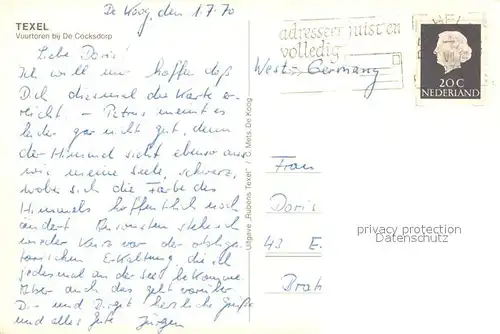 De Koog, den 1.7.70
TEXEL
Vuurtoren bij De Cocksdorp
Liebe Doris!
Ich will nur hoffen daß
Dich diesmal die Karte er-
reicht. – Petrus meint es
leider gar nicht gut, denn
der Himmel sieht ebenso aus
wie meine Seele, schwarz,
wobei sich die Farbe des
Himmels hoffentlich noch
ändert. Ansonsten stehe ich
wieder kurz vor der obliga-
torischen Erkältung die ich
jedesmal an der See bekomme.
Aber auch das geht vorüber
Dir und Birgit herzliche Grüße
und alles Gute Jürgen
Uitgave „Rubens Texel” / C. Mets, De Koog
adresseer juist en
volledig
West-Germany
20 C
NEDERLAND
Frau
Doris
43 E.
Brah
privacy protection
Datenschutz